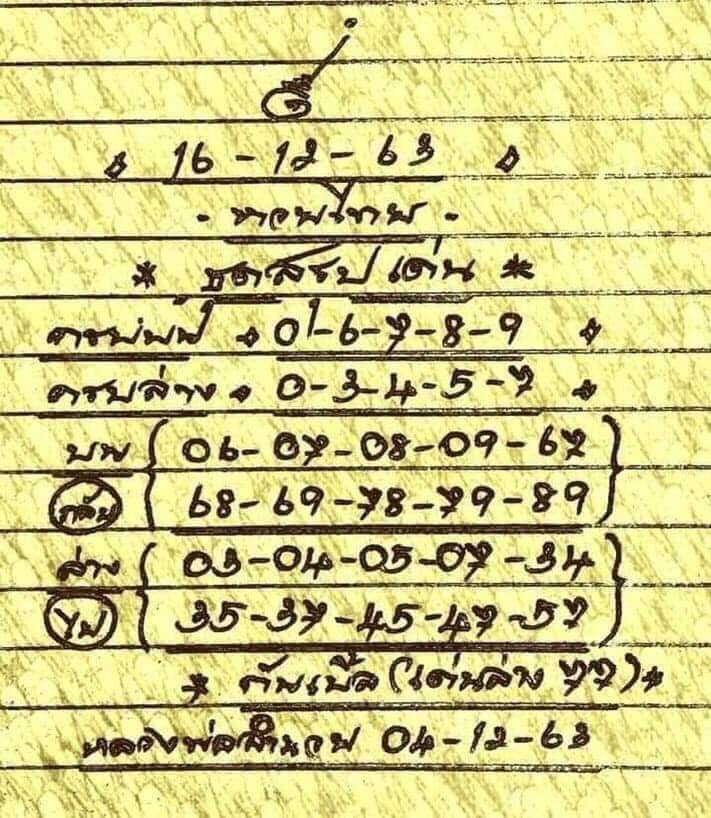 16 - 12 - 63
- หวยไทย -
* ชุดสรุปเด่น *
ครบบน 0-6-7-8-9
ครบล่าง 0-3-4-5-7
บน 06-07-08-09-67
กลับ 68-69-78-79-89
ล่าง 03-04-05-07-34
ไป 35-37-45-47-57
* กันเบิ้ล (เด่นล่าง 77) *
หลวงพ่อ 04-12-63